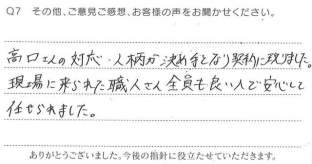 Q7 その他、ご意見ご感想、お客様の声をお聞かせください。
高口さんの対応・人柄が決め手となり契約に至りました。
現場に来られた職人さん全員も良い人で安心して
任せられました。
ありがとうございました。今後の指針に役立たせていただきます。